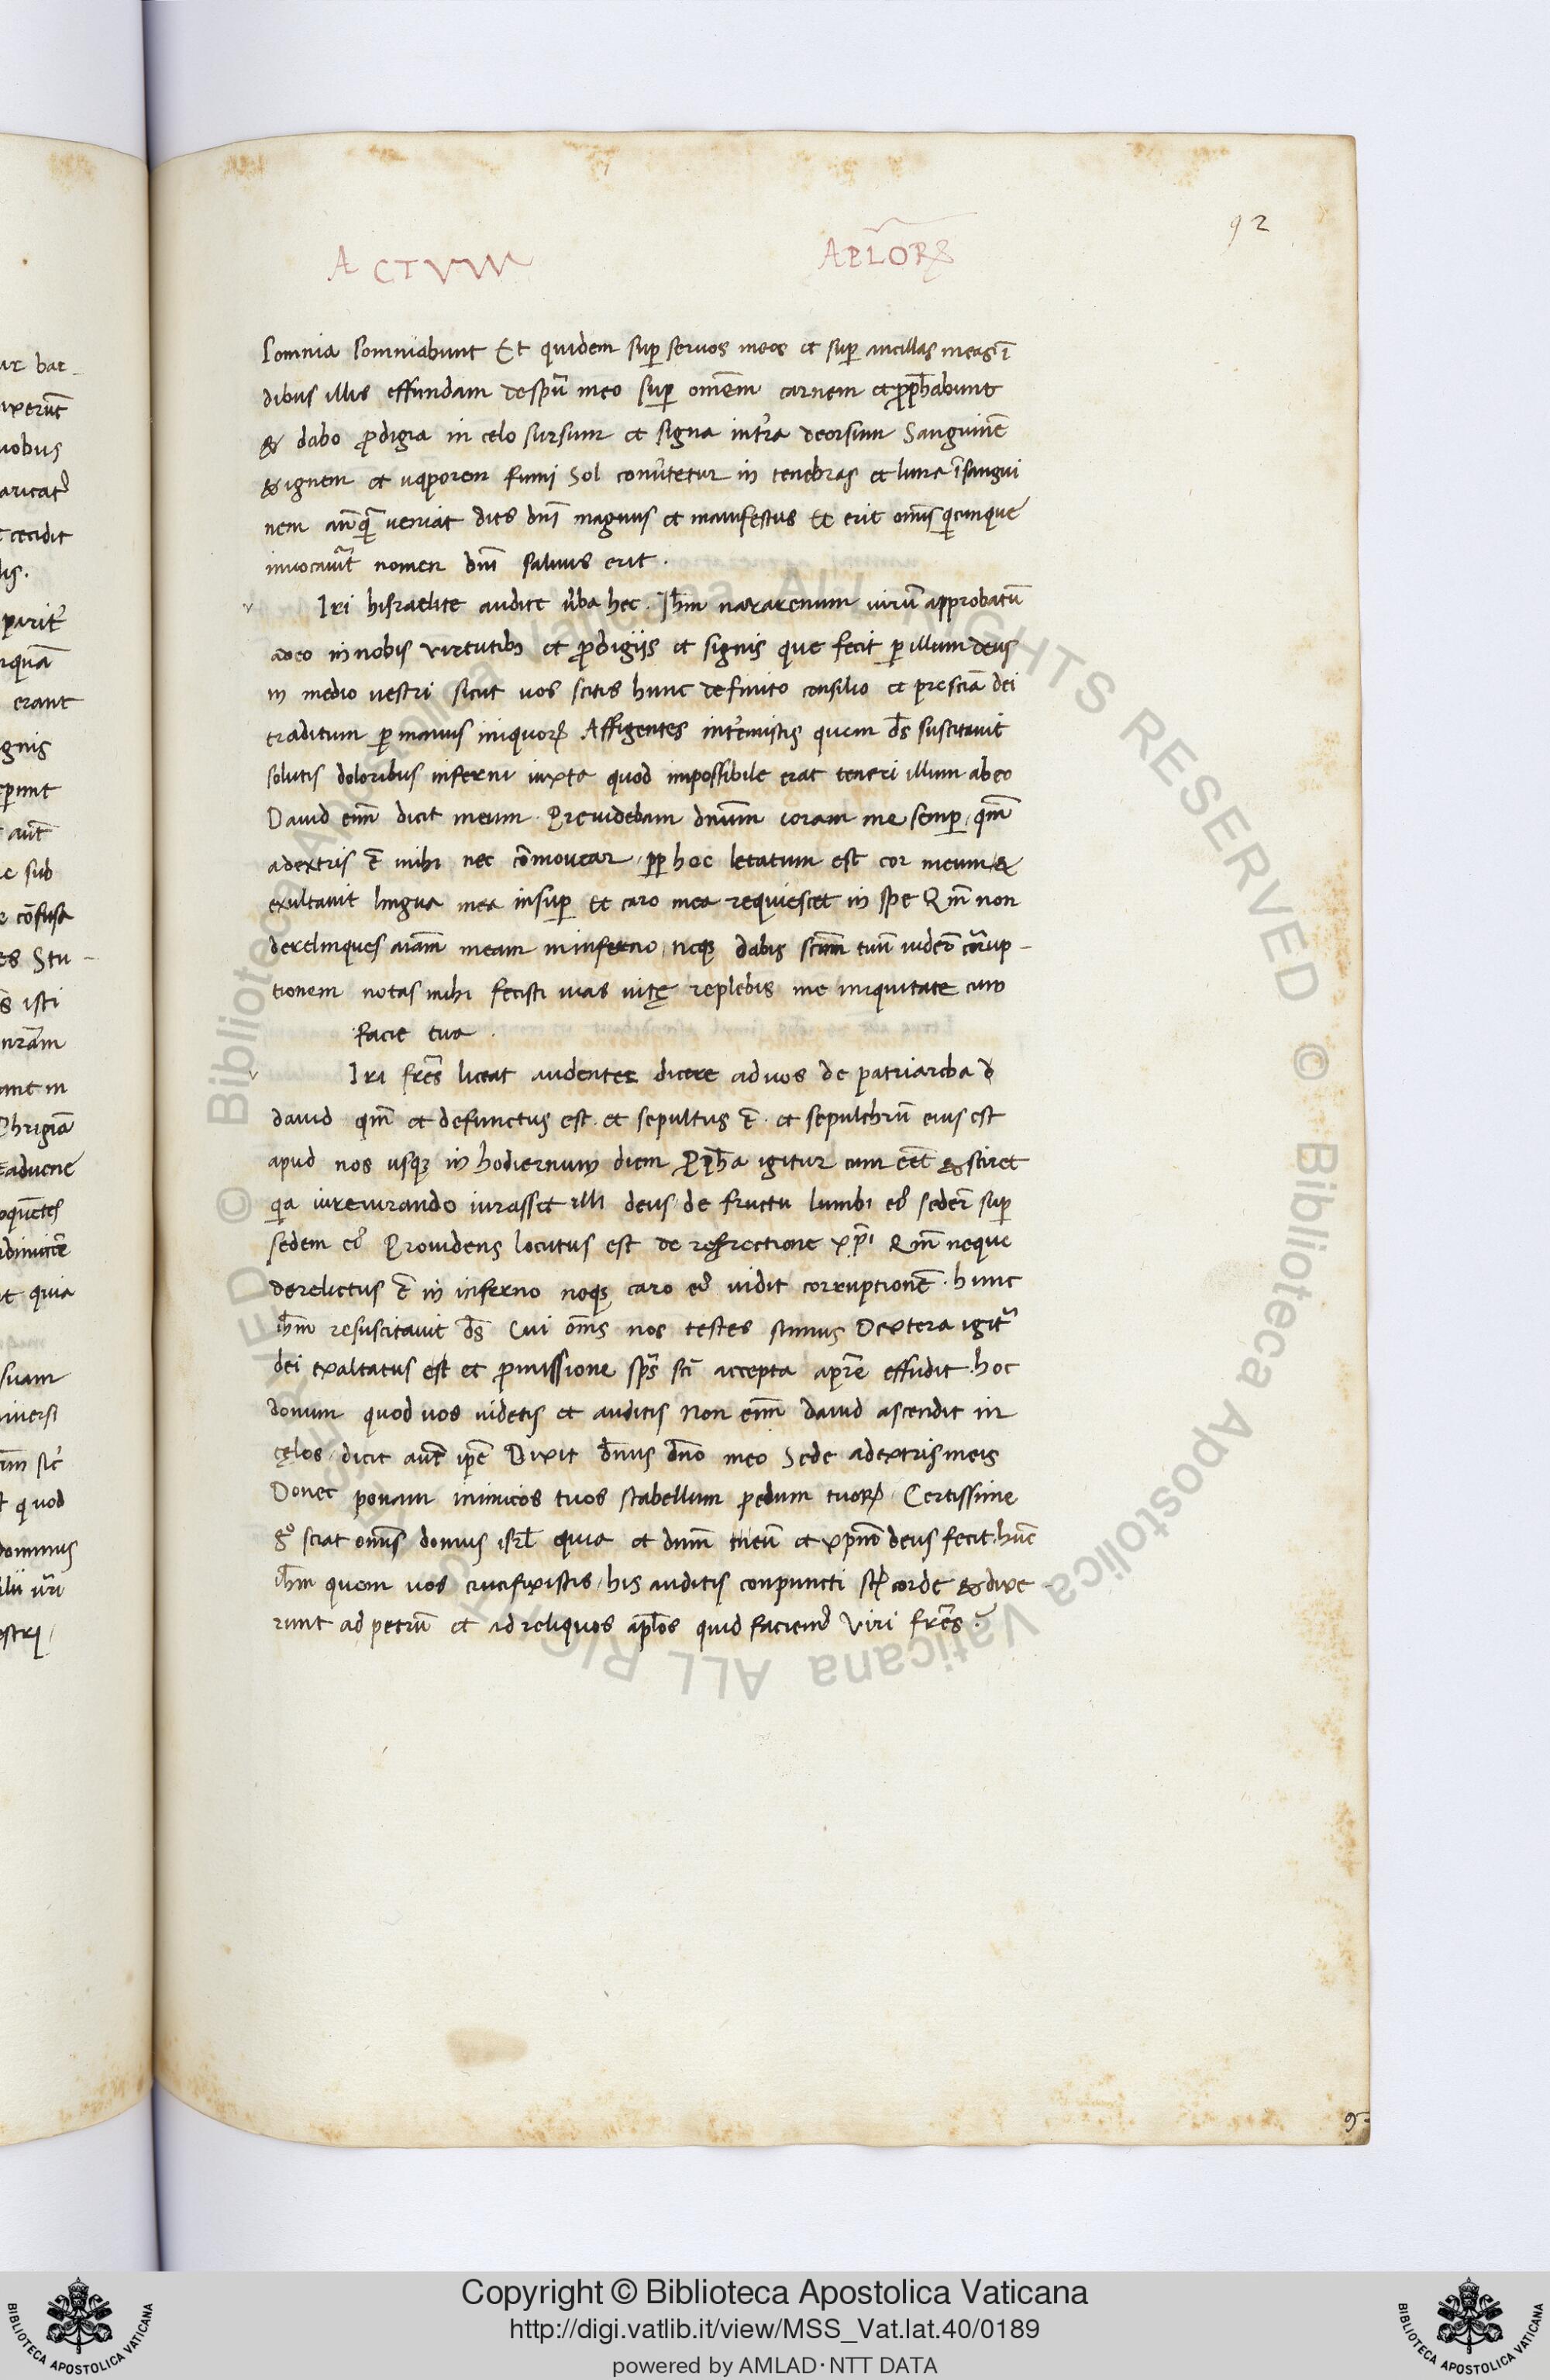 92
ACTVM APLŌRꝜ
somnia somniabunt Et quidem suꝑ seruos meos et suꝑ ancillas meas ī
dibus illis effundam de spū meo suꝑ omēm carnem et ꝓph̄abunt
& dabo ꝓdigia in celo sursum et signa int̄ra deorsum Sanguinē
& ignem et uaporem fumi Sol conūtetur in tenebras et luna ī sangui
nem anꝗ̄ ueniat dies dn̄i magnus et manifestus Et erit om̄is qicunque
inuocaūit nomen dn̄i saluus erit .
v Iri hisraelite audite ūba hec . Ih̄m nazarenum uirū approbatū
adeo in nobis virtutibꝫ et ꝓdigijs et signis que fecit ꝑ illum deus
in medio uestri sicut uos scitis hunc definito consilio et presciā dei
traditum ꝑ manus iniquorꝝ Affigentes int̄emistis quem d̄s suscitauit
solutis doloribus inferni iuxta quod impossibile erat teneri illum ab eo
Dauid eni̅m dicit meum . Preuidebam dnūm coram me semꝑ qm̄
a dextris ē mihi nec cōmouear . ꝓꝑ hoc letatum est cor meum &
exultauit lingua mea insuꝑ Et caro mea requiescet in spe Qm̄ non
derelinques aīam meam in inferno neqꝫ dabis scm̄ tuū uider̄ corrup-
tionem notas mihi fecisti uias uitę replebis me iniquitate cum
facie tua .
v Iri fr̄es liceat audenter dicere ad uos de patriarcha d
dauid qm̄ et defunctus est . et sepultus ē . et sepulchrū eius est
apud nos usqꝫ in hodiernum diem Ꝓph̄a igitur cum eēt & sciret
qia iureiurando iurasset illi deus de fructu lumbi eꝰ seder̄ suꝑ
sedem eꝰ Prouidens locutus est de resrectione xp̄i Qm̄ neque
derelictus ē in inferno neqꝫ caro eꝰ uidit corruptionē . hunc
ih̄m resuscitauit d̄s Cui om̄s nos testes sumus Dextera igit̄
dei exaltatus est et ꝓmissione sp̄s sc̄i accepta a pr̄e effudit . hoc
donum quod uos uidetis et auditis Non enī dauid ascendit in
cęlos . dicit aut̄ ip̄e Dixit dn̄us dn̄o meo Sede a dextris meis
Donec ponam inimicos tuos scabellum pedum tuorꝝ Certissime
gͦ sciat om̄is domus isrl̄ quia et dnm̄ meū et xp̄m deus fecit . hūc
ih̄m quem uos crucifixistis . his auditis conpuncti st̄ corde & dixe-
runt ad petrū et ad reliquos apl̄os quid faciemꝰ Viri fr̄es ?
Copyright © Biblioteca Apostolica Vaticana
http://digi.vatlib.it/view/MSS_Vat.lat.40/0189
powered by AMLAD·NTT DATA